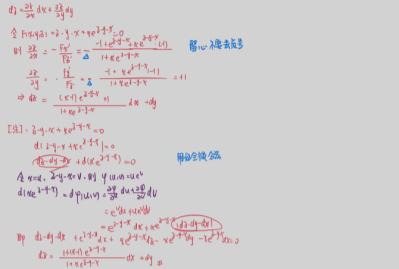 dz = ∂z/∂x dx + ∂z/∂y dy
令 F(x,y,z) = z-y-x+xe^{z-y-x} = 0
则 ∂z/∂x = -Fx'/Fz' = - (-1+e^{z-y-x}+xe^{z-y-x}·(-1))/(1+xe^{z-y-x}) 留心不要丢负号
∂z/∂y = -Fy'/Fz' = - (-1+xe^{z-y-x}(-1))/(1+xe^{z-y-x}) = +1
⇒ dz = ((x-1)e^{z-y-x}+1)/(1+xe^{z-y-x}) dx + dy
z-y-x+xe^{z-y-x} = 0
d(z-y-x+xe^{z-y-x}) = 0
dz-dy-dx + d(xe^{z-y-x}) = 0 用
令 x=u, z-y-x=v, 则 φ(u,v)=ue^v
d(xe^{z-y-x}) = dφ(u,v) = ∂φ/∂u du + ∂φ/∂v dv
= e^v du + ue^v dv
= e^{z-y-x} dx + xe^{z-y-x} (dz-dy-dx)
即 dz-dy-dx + e^{z-y-x} dx + xe^{z-y-x} dz - xe^{z-y-x} dy - xe^{z-y-x} dx = 0
dz = (1+(x-1)e^{z-y-x})/(1+xe^{z-y-x}) dx + dy